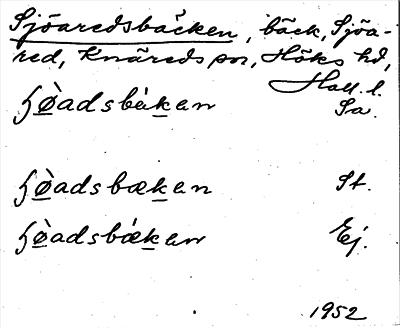 Sjöaredsbäcken, bäck, Sjöa-
red, Knäreds sn, Höks hd,
Hall. l.
ɧø̀adsbækan Sa.
ɧø̀adsbækan St.
ɧø̀adsbækan Ej.
1952